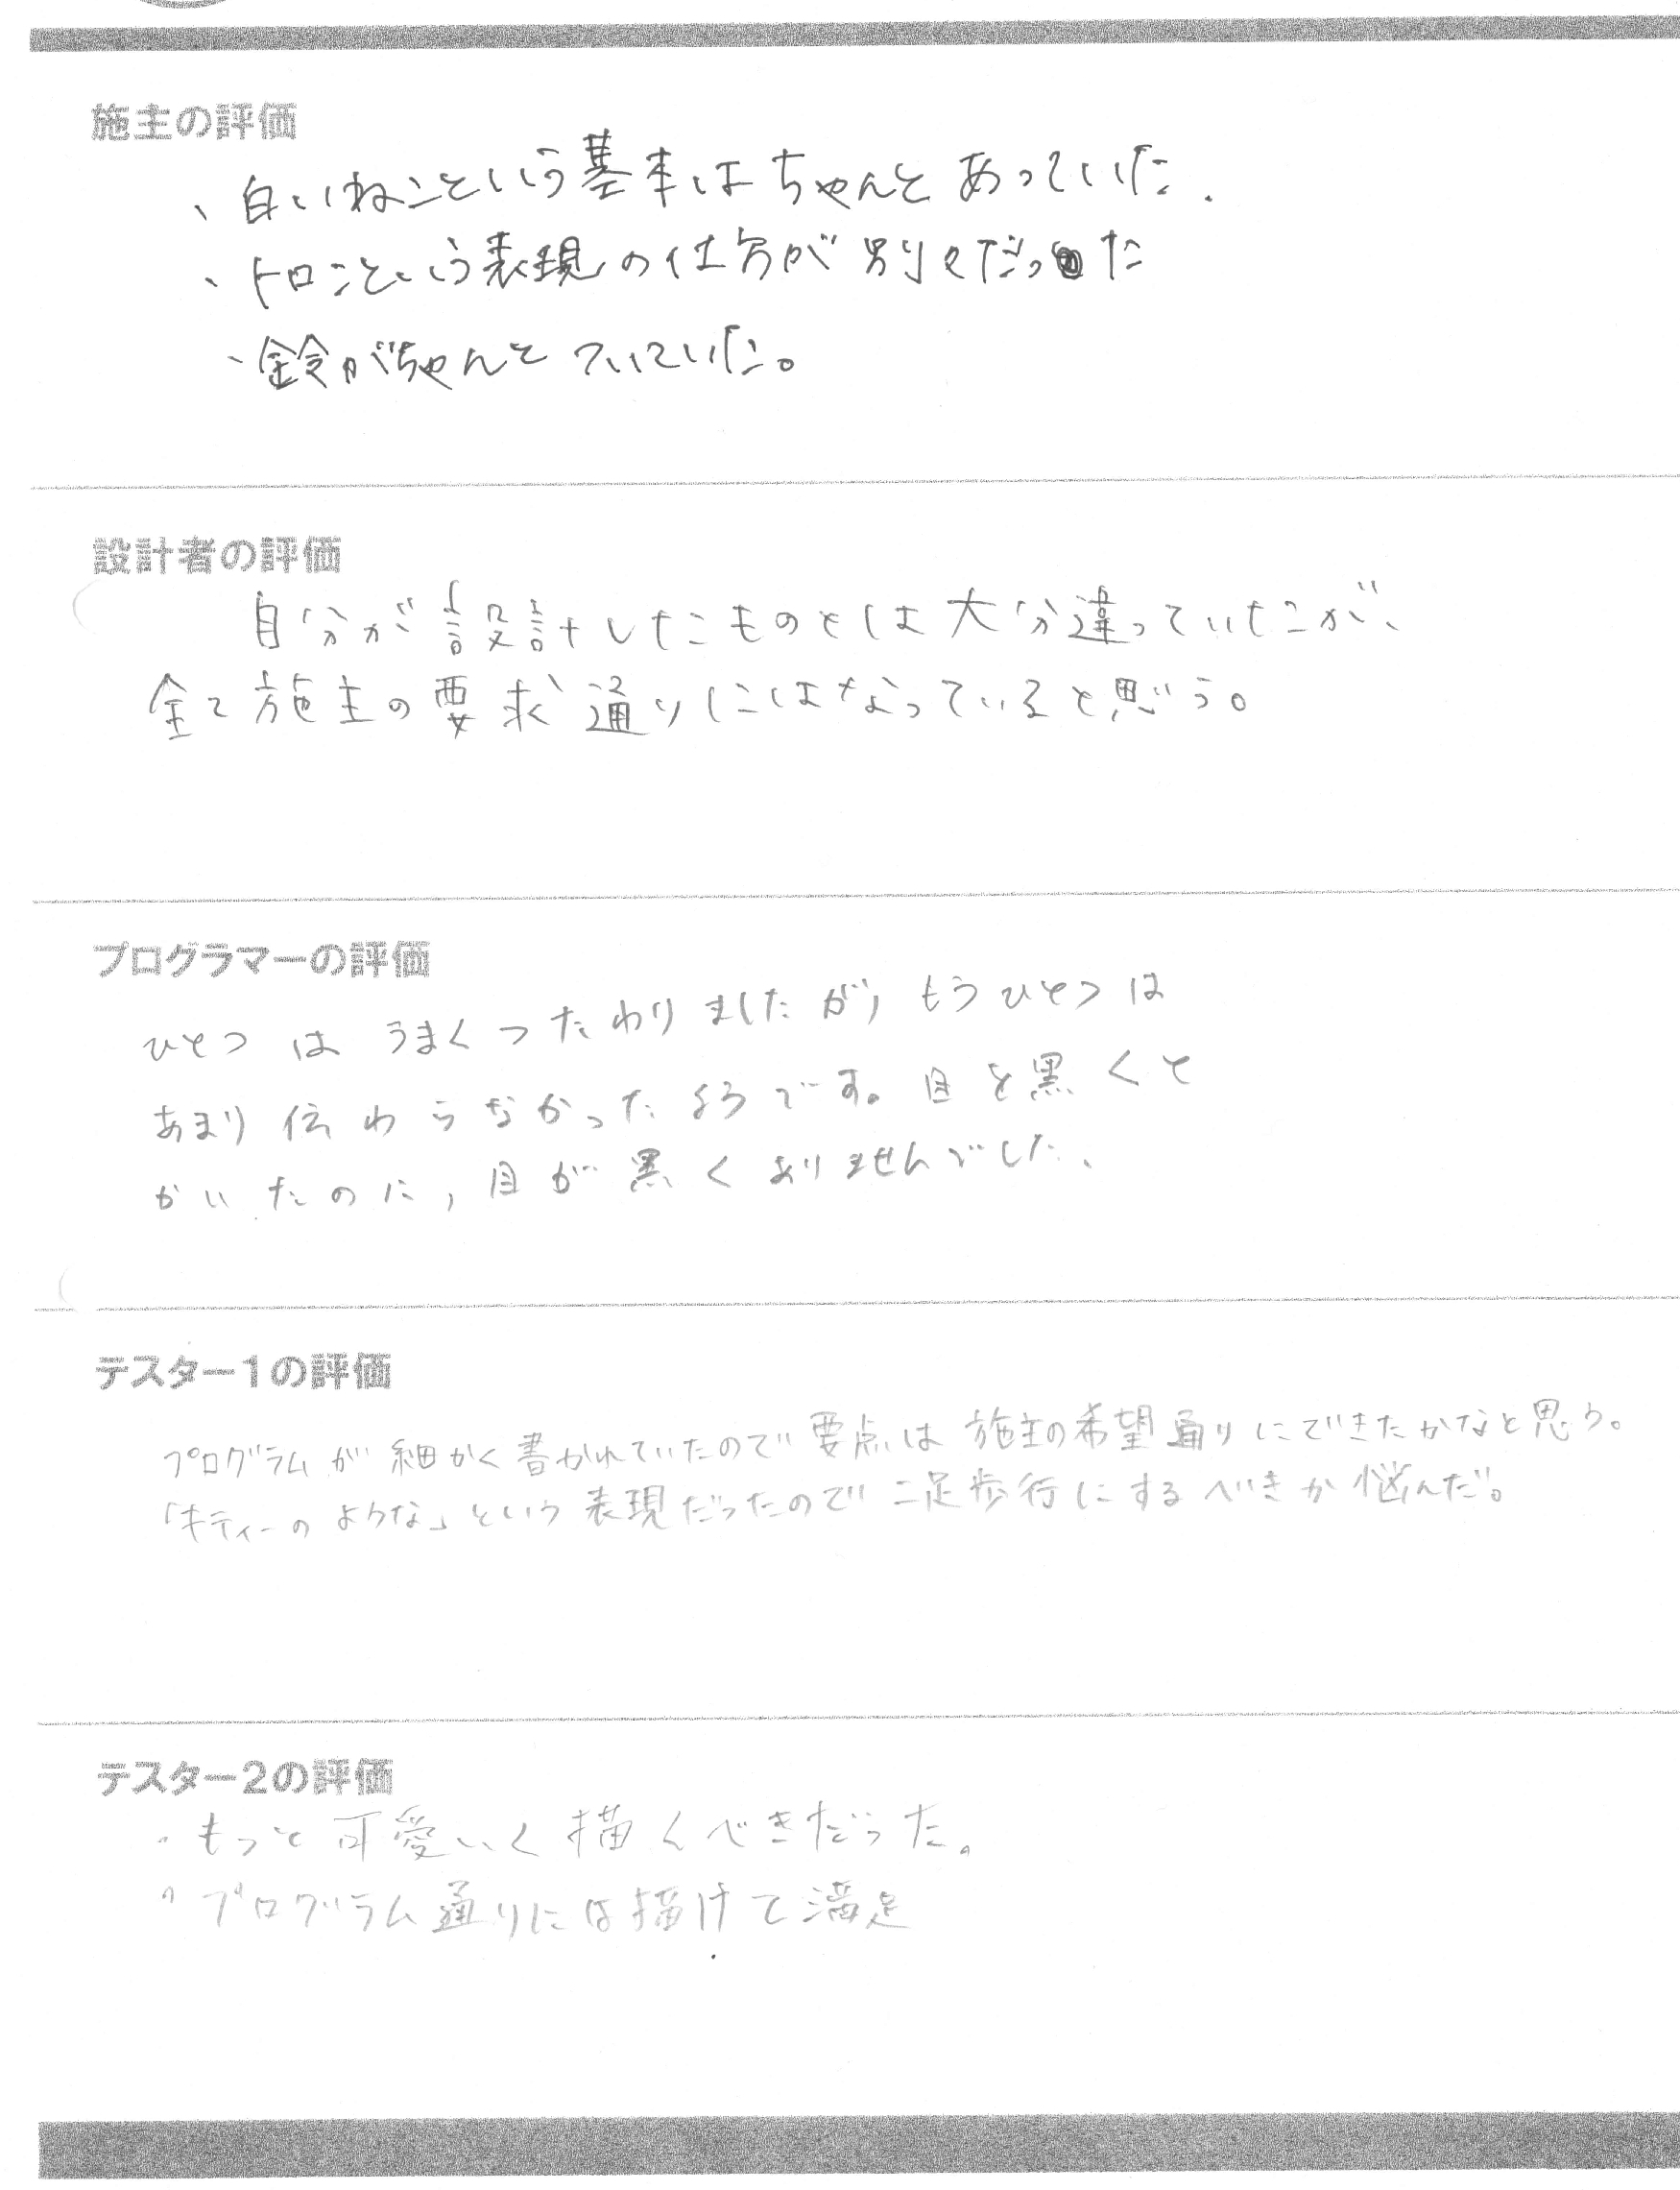 施主の評価
、白いねこという基本はちゃんとあっていた.
、トロンという表現の仕方が別々だった
、鈴がちゃんとついていた。
設計者の評価
自分が設計したものとは大分違っていたが、
全て施主の要求通りにはなっていると思う。
プログラマーの評価
ひとつはうまくつたわりましたが, もうひとつは
あまり伝わらなかったようです。目を黒くと
かいたのに, 目が黒くありませんでした、
テスター1の評価
プログラムが細かく書かれていたので要点は施主の希望通りにできたかなと思う。
「キティーのような」という表現だったので二足歩行にするべきか悩んだ。
テスター2の評価
・もっと可愛いく描くべきだった。
・プログラム通りには描けて満足